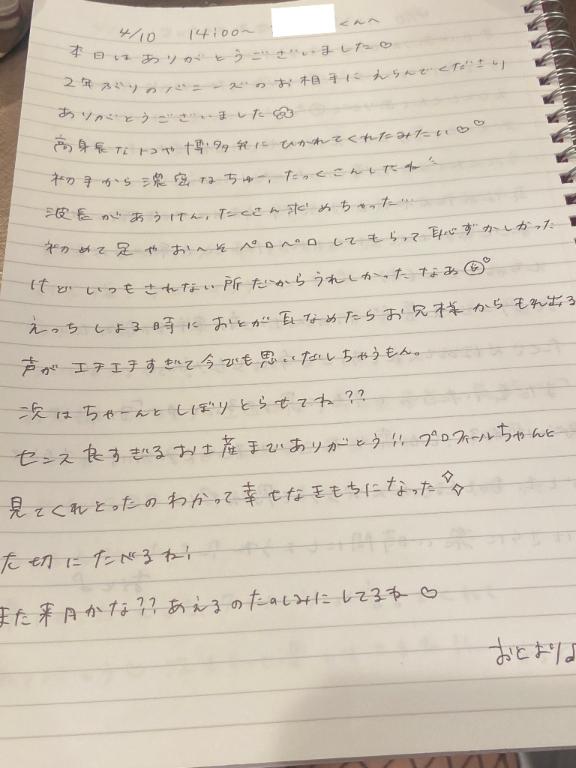 4/10 14:00〜 くんへ
本日はありがとうございました♡
2年ぶりのバニーズのお相手にえらんでくださり
ありがとうございました
高身長なトコや博多弁にひかれてくれたみたい♡♡
初手から濃密なちゅー、たっくさんしたね
波長があうけん、たくさん求めちゃった…
初めて足やおへそペロペロしてもらって恥ずかしかった
けどいつもされない所だからうれしかったなあ
えっちしよる時におとが耳なめたらお兄様からもれ出る
声がエチエチすぎて今でも思いだしちゃうもん。
次はちゃーんとしぼりとらせてね??
センス良すぎるお土産までありがとう!! プロフィールちゃんと
見てくれとったのわかって幸せなきもちになった
た切にたべるね!
また来月かな?? あえるのたのしみにしてるね♡
おとより♪